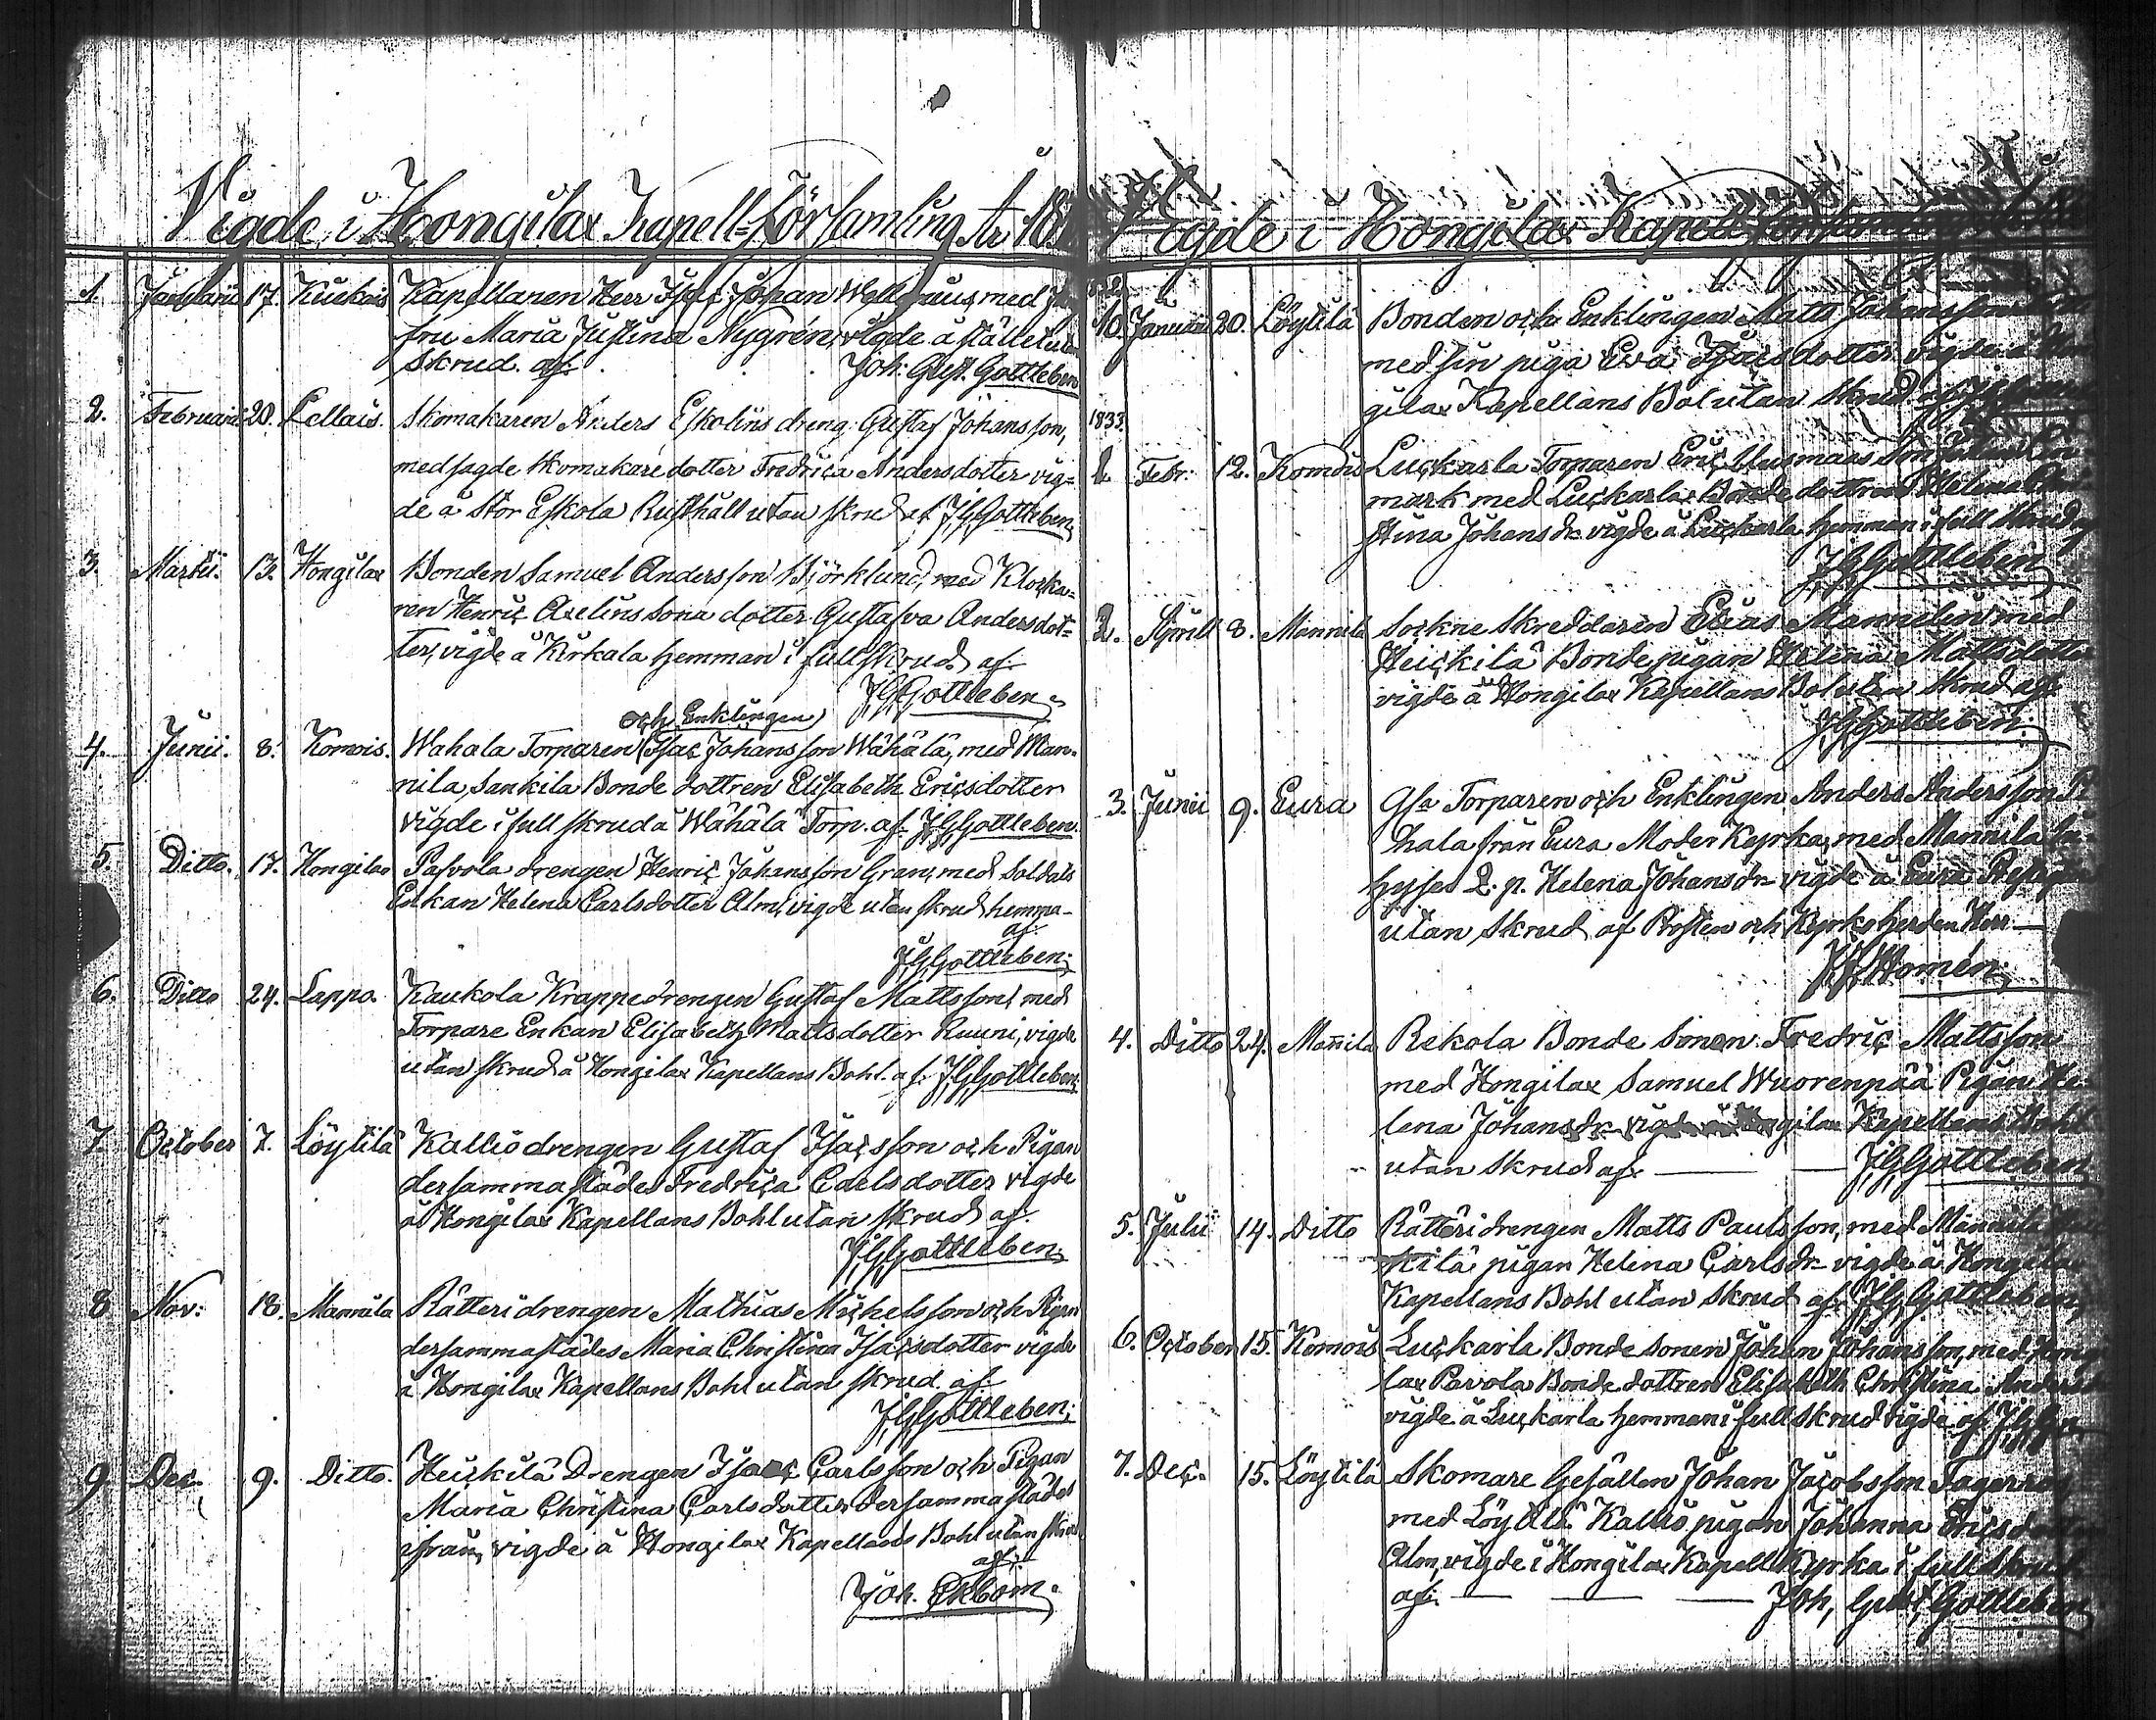 Vigde i Hongilax Kapell-församling År 18
1. Januarii 17. Kiukais Kapellanen Herr Isac Johan Wallenius, med Jung
fru Maria Justina Nygrén, vigde å stället utan
skrud af. Joh: Gust. Gottleben
2. Februarii 20. Lellais. Skomakaren Anders Eskolins dreng Gustaf Johansson,
med sagde skomakare dotter Fredrica Andersdotter vig=
de å Stor Eskola Rusthåll utan skrud af JGGottleben
3. Martii. 13. Hongilax Bonden Samuel Andersson Björklund, med Klocka=
ren Henric Axelins sona dotter Gustafva Andersdot=
ter, vigde å Kirkala hemman i full skrud af
JGGottleben
och Enklingen
4. Junii. 8. Komois. Wahala Torparen Isac Johansson Wähälä, med Man-
nila, Sankila Bonde dottren Elisabeth Ericsdotter
vigde i full skrud å Wähälä Torp. af JGGottleben.
5. Ditto. 17. Hongilax Pavola drengen Henric Johansson Gran, med Soldats
Enkan Helena Carlsdotter Alm, vigde utan skrud hemma
af.
JGGottleben.
6. Ditto 24. Lappo. Kaukola Krappedrengen Gustaf Mattsson, med
Torpare Enkan Elisabeth Mattsdotter Ruuni, vigde
utan skrud å Hongilax Kapellans Bohl. af. JGGottleben.
7. October 7. Löytilä Kallio drengen Gustaf Isacsson och Pigan
dersammastädes Fredrica Carlsdotter vigde
å Hongilax Kapellans Bohl utan skrud af.
JGGottleben.
8 Nov: 18. Mannila Rätteri drengen Mathias Michelsson och Pigan
dersammastädes Maria Christina Isacsdotter vigde
å Hongilax Kapellans Bohl utan skrud af
JGGottleben;
9. Dec. 9. Ditto. Heickilä Drengen Isaac Carlsson och Pigan
Maria Christina Carlsdotter dersammastädes
ifrån, vigde å Hongilax Kapellans Bohl utan skrud
af.
Joh. Ekbom.
Vigde i Hongilax Kapell
1832
10. Januarii 20. Löytilä Bonden och Enklingen Matts Johansson
med sin piga Eva Isacsdotter vigde å Hon
gilax Kapellans Bol utan skrud af
1833.
1 Febr: 12. Komois Luckarla Torparen Eric
mark med Luckarla Bonde dottren Helena
stina Johansdr vigde å Luckarla hemman i full skrud af
JGGottleben
2. Aprill 8. Mannila Sockne Skreddaren Elias Mannelin med
Heickilä Bonde pigan Helena Mattsdotter
vigde å Hongilax Kapellans Bol utan skrud af
JGGottleben.
3. Junii 9. Eura Gla Torparen och Enklingen Anders Andersson
hala från Eura Moder Kyrka, med Mannila
hyses Q. p. Helena Johansdr vigde å Eura
utan skrud af Prosten och Kyrkoherden Herr
Homén.
4. Ditto 24. Mañila Rekola Bonde sonen Fredric Mattsson
med Hongilax Samuel Wuorenpää Pigan He
lena Johansdr vigde å Hongilax Kapellans Bohl
utan skrud af. JGGottleben
5. Julii 14. Ditto Rätteri drengen Matts Paulsson, med Mannila
kilä pigan Helena Carlsdr vigde å Hongilax
Kapellans Bohl utan skrud af JGGottleben,
6. October 15. Komois Luckarla Bonde sonen Johan Johansson, med Hongi
lax Pavola Bonde dottren Elisabeth Christina
vigde å Luckarla hemman i full skrud vigde af
7. Dec. 15. Löytilä Skomare Gesällen Johan Jacobsson
med Löytilä Kallio pigan Johanna Ericsdotter
Alm, vigde i Hongilax Kapell Kyrka i full skrud
af. Joh, Gust, Gottleben